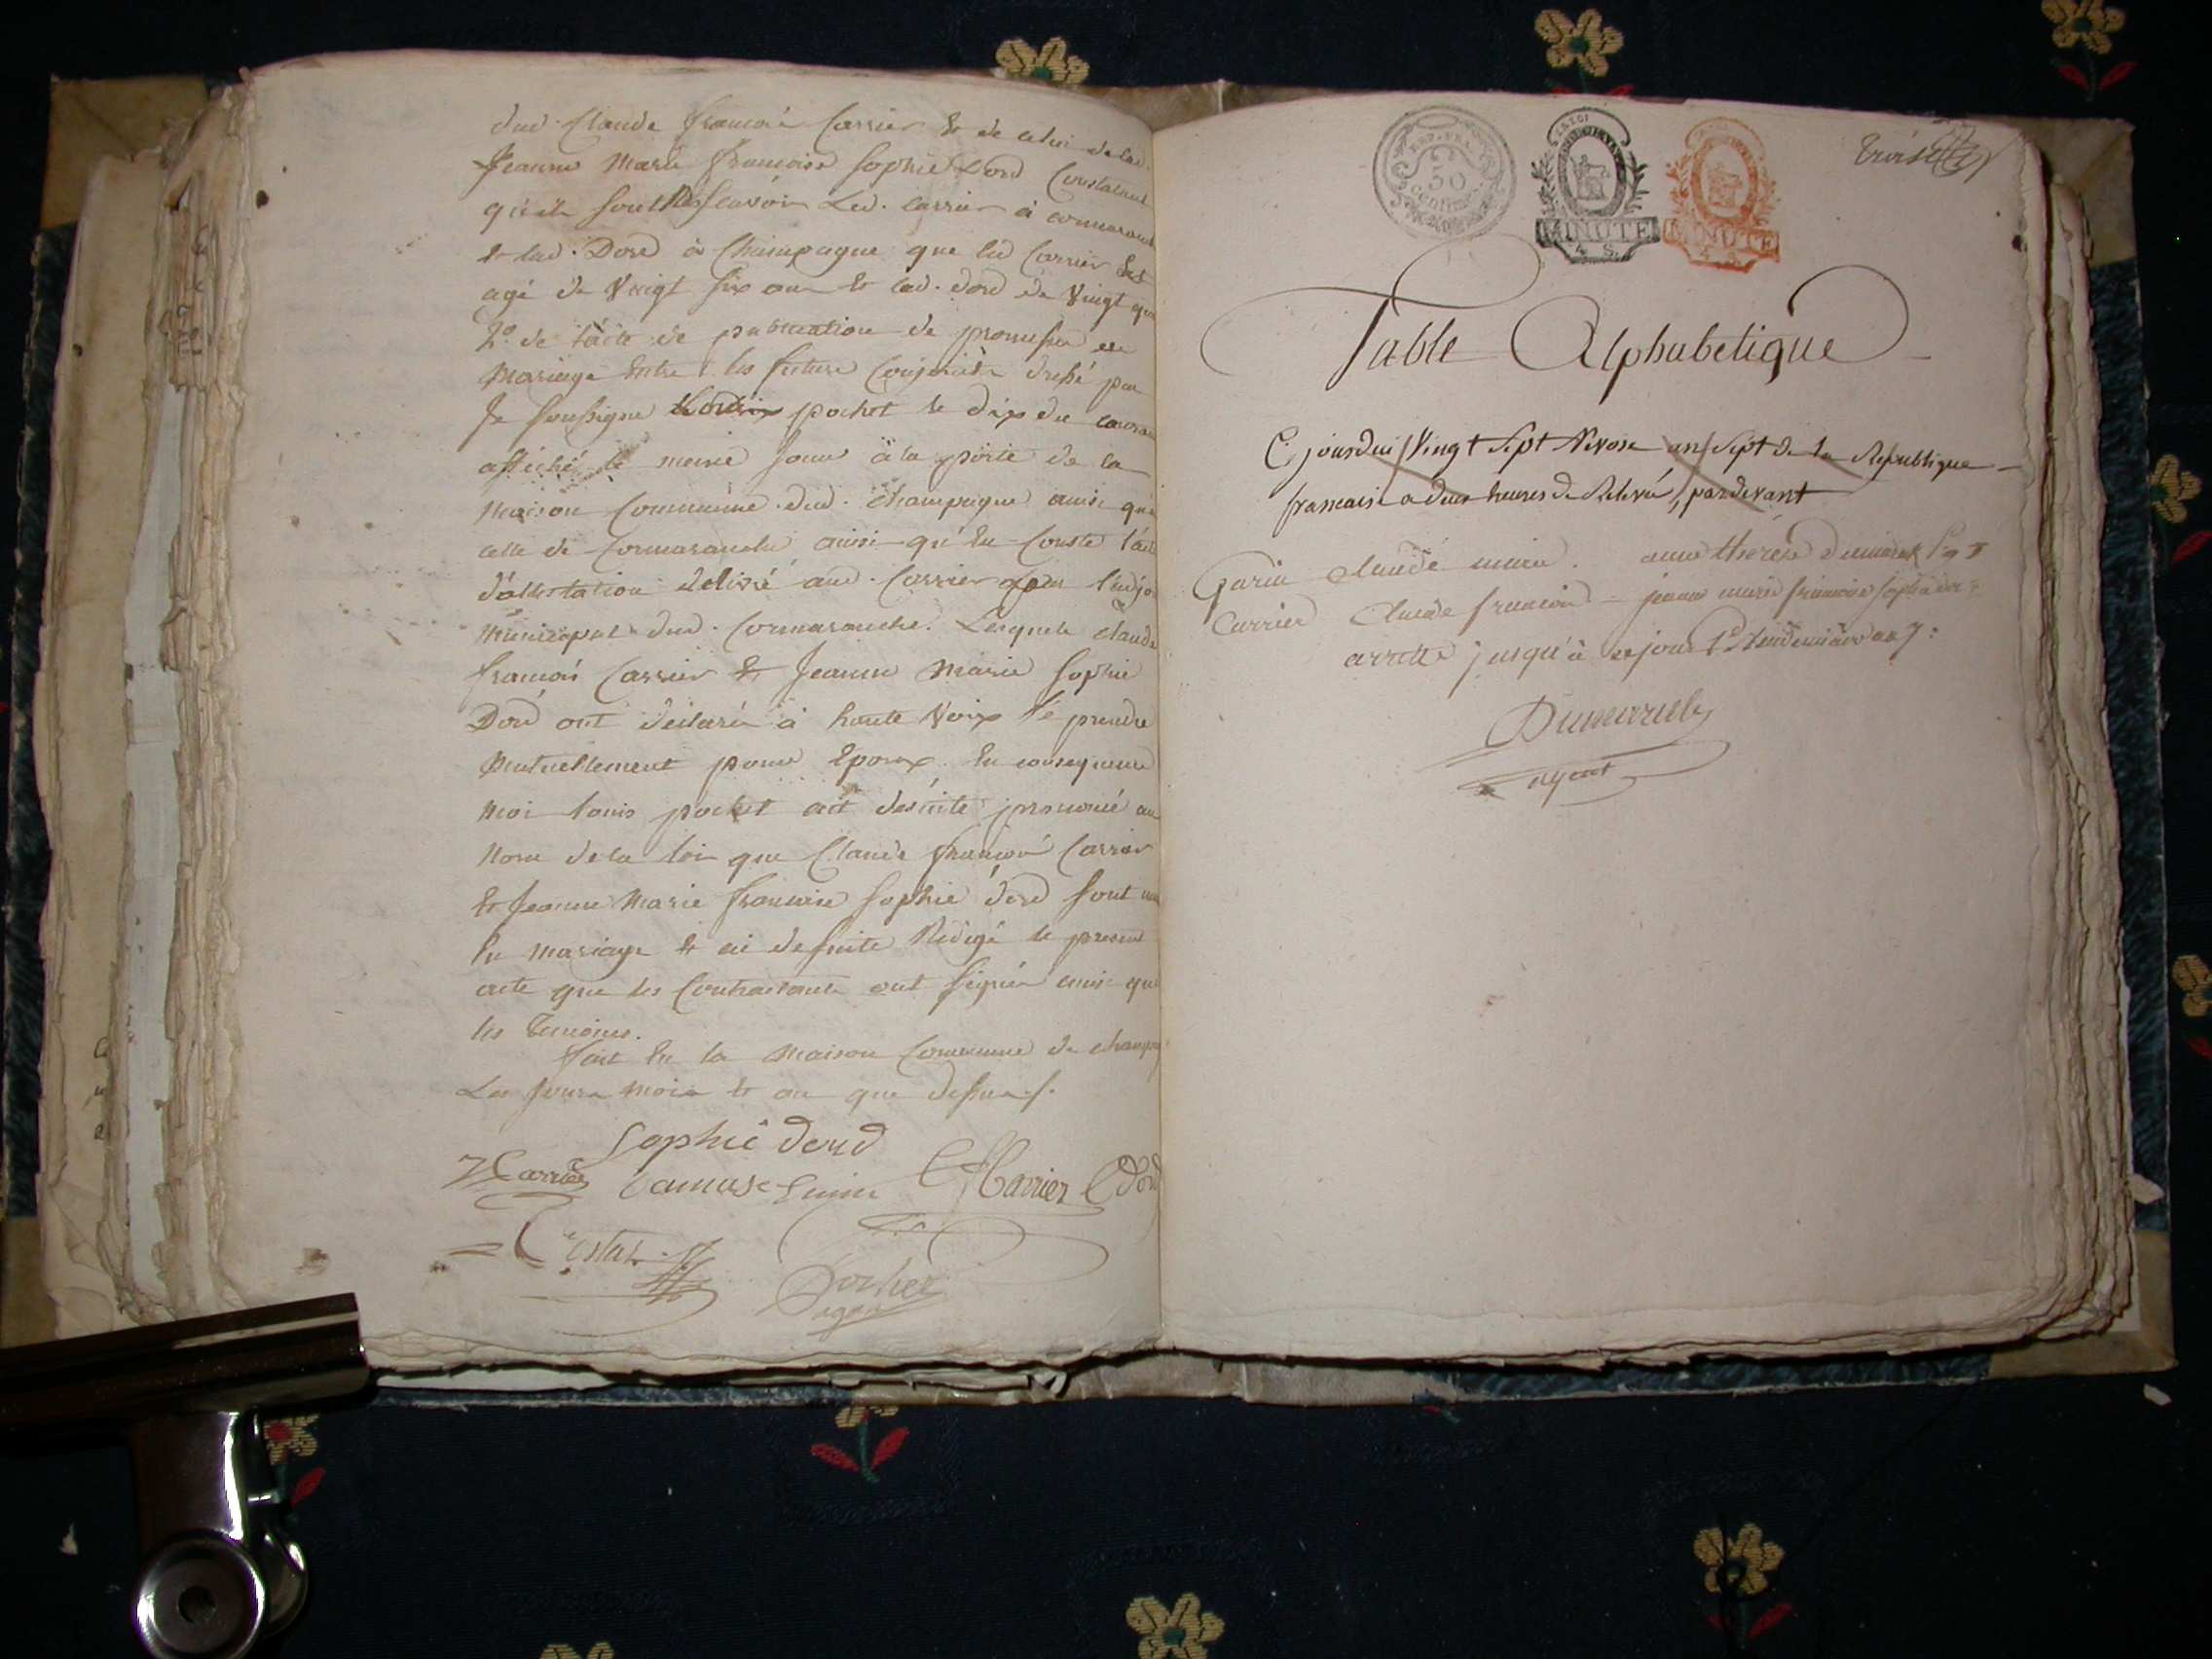 dud. Claude françois Carrier & de celui de lad.
Jeanne Marie françoise Sophie Dord Constatant
qu'ils sont Nés scavoir Led. Carrier à
& lad. Dord à Champagne que led Carrier Est
agé de Vingt six ans & lad. dord de Vingt
2° de l'acte de publication de promesse de
Mariage Entre les futurs Conjoints dressé par
Je soussigné pochet le dix du
affiché le meme jour à la porte de la
Maison Commune dud. Champagne ainsi que
celle de Cormaranche ainsi qu'En Conste l'acte
d'attestation delivré aud. Carrier par
municipal dud. Cormaranche. Lesquels Claude
françois Carrier & Jeanne Marie Sophie
Dord ont declaré à haute Voix se prendre
Mutuellement pour Epoux. En consequence
Moi Louis pochet ait desuite prononcé au
Nom de la loi que Claude françois Carrier
& Jeanne Marie françoise Sophie dord sont unis
En mariage & ai desuite Redigé le present
acte que les Contractants ont signés ainsi que
les Temoins.
fait En la maison Commune de
Les jours mois & an que dessus.
Sophie dord
Carrier Camuse Carrier dord
Pochet
agent
REP. FRA.
50
centimes
MINUTE
4 S.
MINUTE
4 S.
trois
Table Alphabetique
Cejourdui Vingt Sept Nivose an Sept de la Republique
francaise a deux heures de Relevé, pardevant
Garin Claude marie. anne therese
Carrier Claude francois - jeanne marie francoise sophie
arretté jusqu'à cejour 1er Vendemiaire an 7:
agent